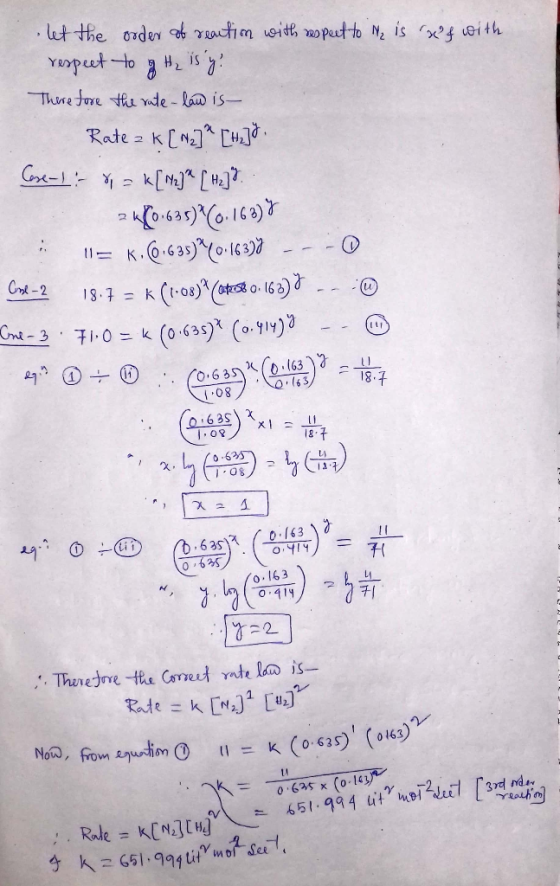 · let the order of reaction with respect to N₂ is 'x' & with
respect to H₂ is 'y'.
Therefore the rate-law is—
Rate = K [N₂]ˣ [H₂]ʸ.
Case-1 :- r₁ = K[N₂]ˣ [H₂]ʸ.
= K(0.635)ˣ(0.163)ʸ
∴ 11 = K.(0.635)ˣ(0.163)ʸ - - - ①
Case-2 18.7 = K (1.08)ˣ (0.163)ʸ - - - (ii)
Case-3 · 71.0 = K (0.635)ˣ (0.414)ʸ - - (iii)
eqⁿ ① ÷ (ii) ∴ (0.635/1.08)ˣ . (0.163/0.163)ʸ = 11/18.7
∴ (0.635/1.08)ˣ × 1 = 11/18.7
x. log (0.635/1.08) = log (11/18.7)
x = 1
eqⁿ ① ÷ (iii) (0.635/0.635)ˣ . (0.163/0.414)ʸ = 11/71
y. log (0.163/0.414) = log 11/71
∴ y = 2
∴ Therefore the Correct rate law is—
Rate = K [N₂]¹ [H₂]²
Now, from equation ① 11 = K (0.635)¹ (0163)²
∴ K = 11/0.635 × (0.163)²
= 651.994 lit² mol⁻² sec⁻¹ [3rd order reaction]
∴ Rate = K[N₂][H₂]²
& K = 651.994 lit² mol⁻² sec⁻¹.